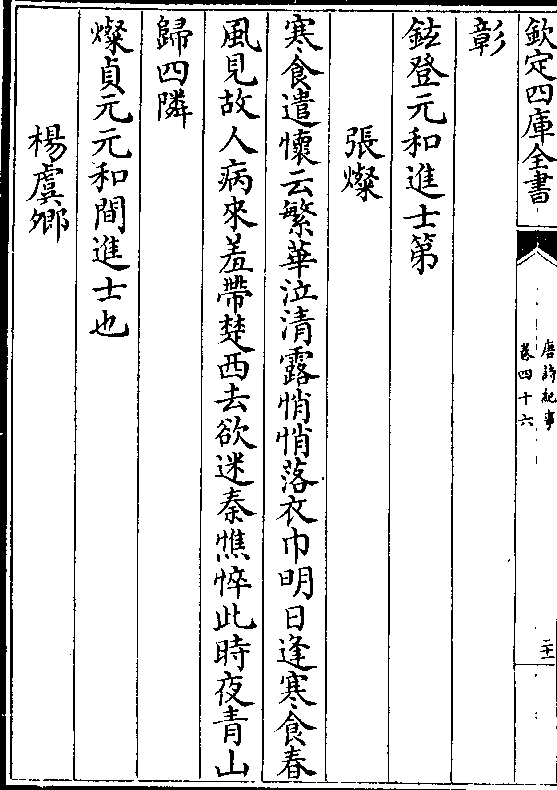 欽定四庫全書
唐詩紀事
卷四十六
二十一
彰
鉉登元和進士第
張燦
寒食遣懷云繁華泣清露悄悄落衣巾明日逢寒食春
風見故人病來羞帶楚西去欲迷秦憔悴此時夜青山
歸四隣
燦貞元元和間進士也
楊虞卿